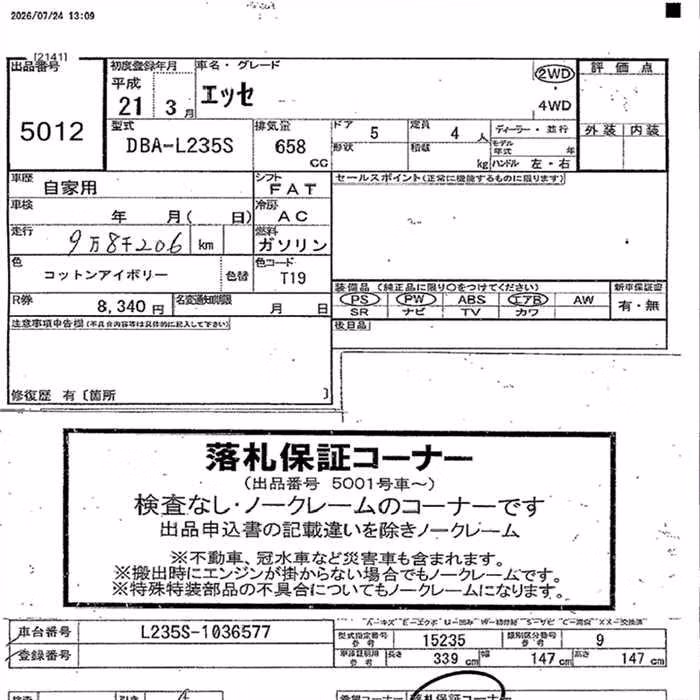 2026/07/24 13:09
[2141]
出品番号 初度登録年月 車名・グレード 評価点
平成 21 3月 エッセ 2WD
4WD
5012 型式 排気量 ドア 5 定員 4人 ディーラー・並行 外装 内装
DBA-L235S 658 CC 形状 積載 kg モデル年式 年
ハンドル 左・右
車歴 自家用 シフト FAT セールスポイント(正常に機能するものに限ります)
車検 年 月( 日) 冷房 AC
走行 9万8千206 km 燃料 ガソリン
色 コットンアイボリー 色替 色コード T19
装備品 (純正品に限り○をつけてください) 新車保証書
R券 8,340円 名変通知期限 月 日 PS PW ABS エアB AW 有・無
SR ナビ TV カワ
注意事項申告欄(不具合内容等は具体的に記入して下さい) 後日品
修復歴 有〔箇所 〕
落札保証コーナー
(出品番号 5001号車~)
検査なし・ノークレームのコーナーです
出品申込書の記載違いを除きノークレーム
※不動車、冠水車など災害車も含まれます。
※搬出時にエンジンが掛からない場合でもノークレームです。
※特殊特装部品の不具合についてもノークレームになります。
車台番号 L235S-1036577 型式指定番号 参考 15235 類別区分番号 参考 9
登録番号 車検証期間 参考 長さ 339cm 幅 147cm 高さ 147cm
希望コーナー 落札保証コーナー